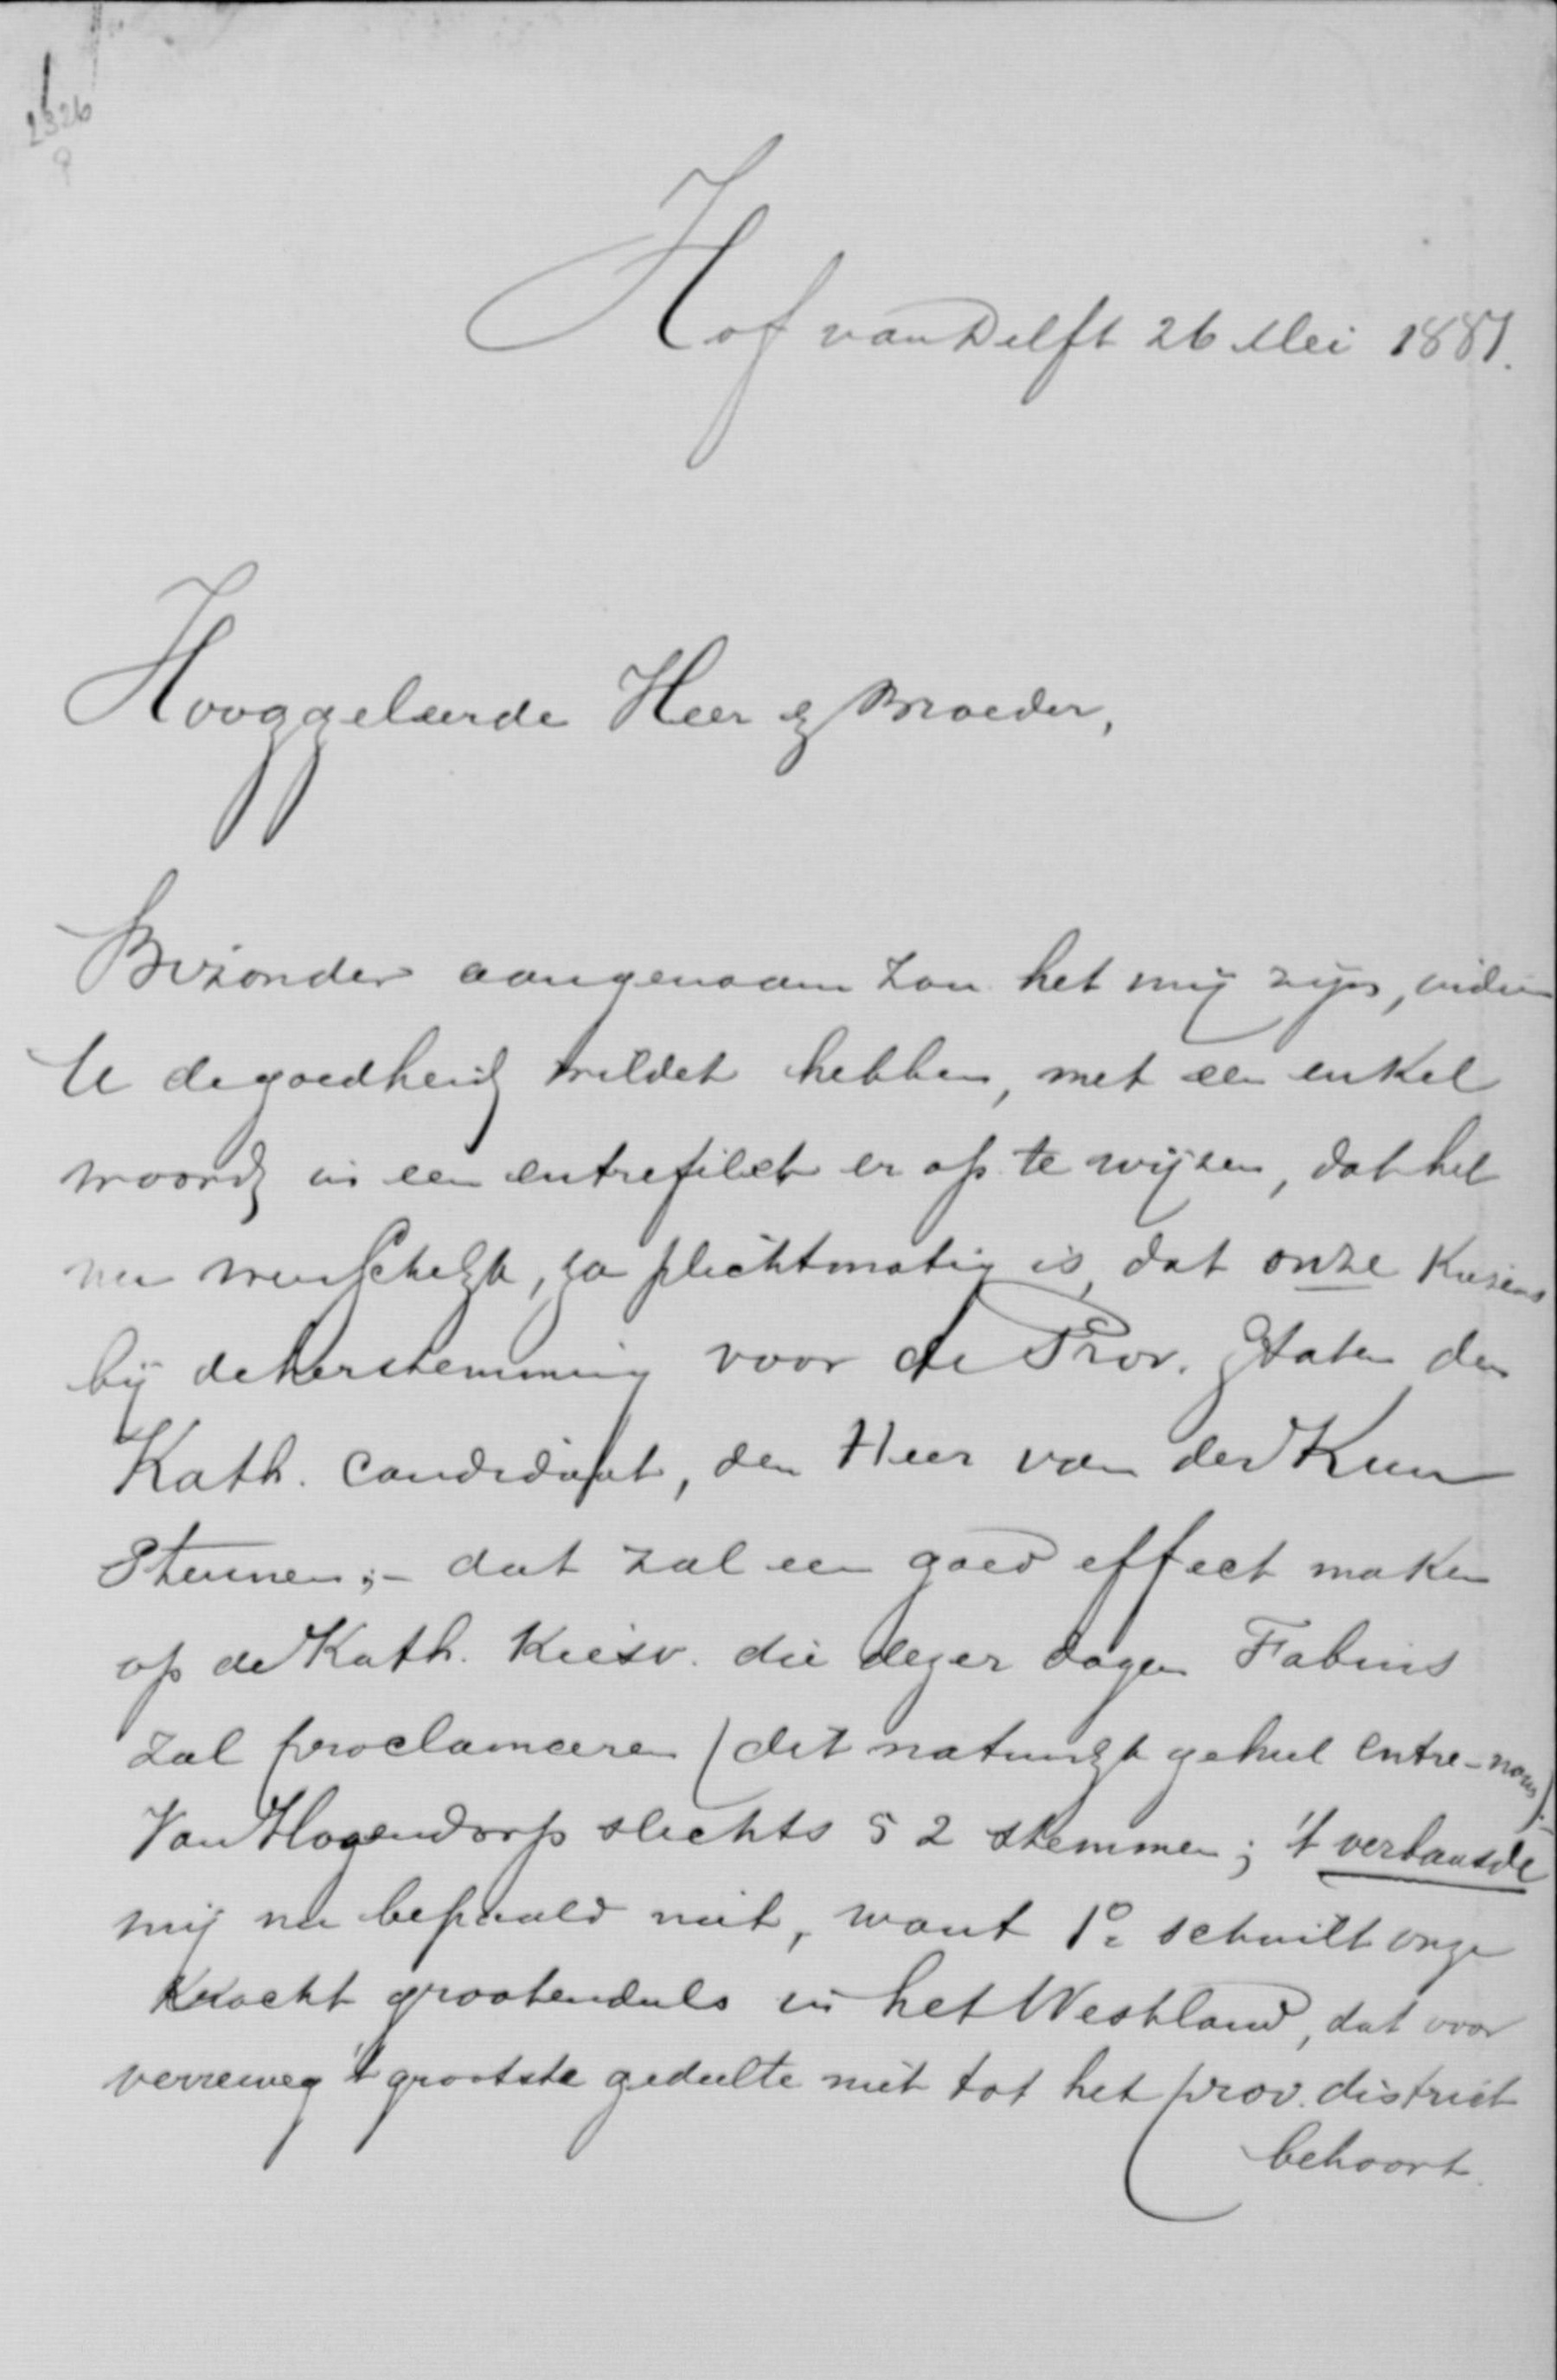 2326
Hof van Delft 26 Mei 1881.
Hooggeleerde Heer & Broeder,
Bizonder aangenaam zou het mij zijn, indien
U de goedheid wildet hebben, met een enkel
woord in een entrefilet er op te wijzen, dat het
nu wenschelijk, ja plichtmatig is, dat onze Kiezers
bij de herstemming voor de Prov. Staten den
Kath. candidaat, den Heer van der Kun
steunen; - dat zal een goed effect maken
op de Kath. Kiesv. die dezer dagen Fabius
zal proclameeren (dit natuurlijk geheel entre-nous).-
Van Hogendorp slechts 52 stemmen; 't verbaasde
mij nu bepaald niet, want 1o schuilt onze
Kracht grootendeels in het Westland, dat voor
verreweg 't grootste gedeelte niet tot het prov. district
behoort.